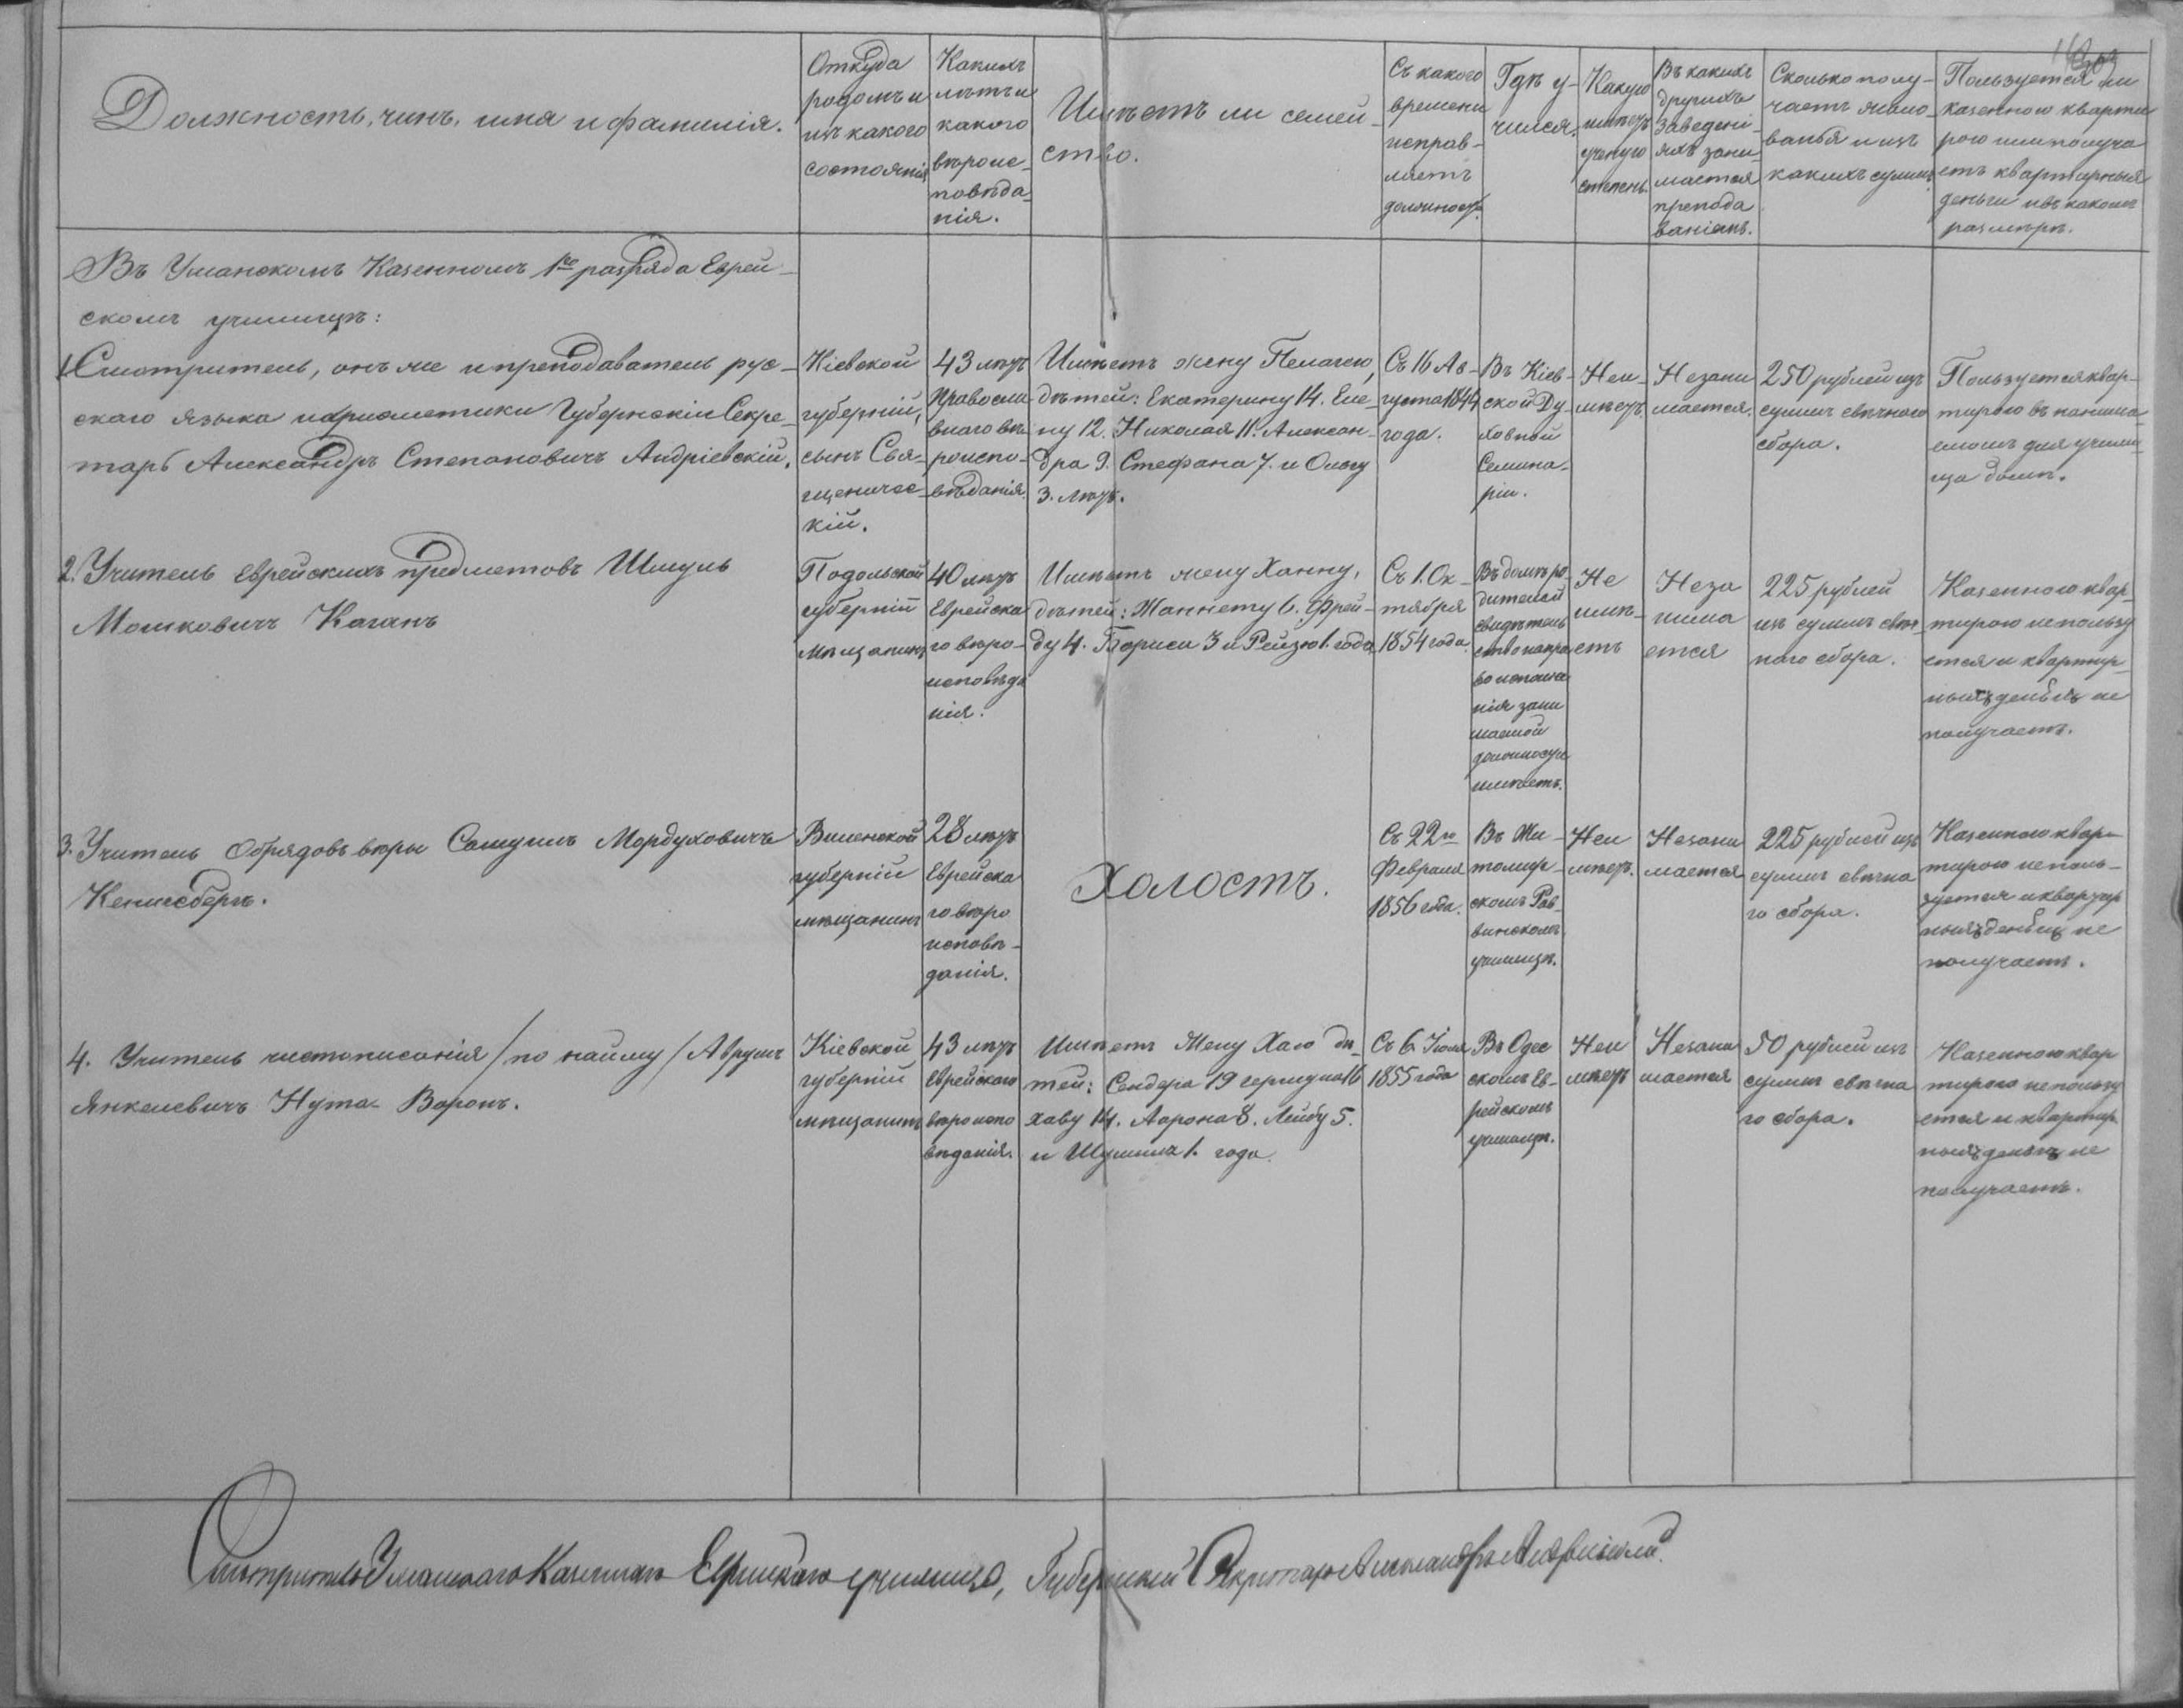 Должность, чинъ, имя и фамилія.
Откуда
родомъ и
изъ какого
состоянія
Какихъ
лѣтъ и
какого
вѣроис-
повѣда-
нія.
Имѣетъ ли семей-
ство.
Съ какого
времени
исправ-
ляетъ
должность.
Гдѣ у-
чился.
Какую
имѣетъ
ученую
степень.
Въ какихъ
другихъ
заведені-
яхъ зани-
мается
препода
ваніемъ.
Сколько полу-
чаетъ жало-
ванья и изъ
какихъ суммъ
Пользуется ли
казенною кварти
рою или получа
етъ квартирныя
деньги и въ какомъ
размѣрѣ.
Въ Уманскомъ Казенномъ 1го разряда Еврей-
скомъ училищѣ:
1. Смотритель, онъ же и преподаватель рус-
скаго языка и ариѳметики Губернскій Секре-
тарь Александръ Степановичъ Андріевскій.
Кіевской
губерніи,
сынъ Свя-
щеничес-
кій.
43 лѣтъ
Православ
внаго вѣ-
роиспо-
вѣданія.
Имѣетъ жену Пелагею,
дѣтей: Екатерину 14. Еле-
ну 12. Николая 11. Алексан-
дра 9. Стефана 7. и Ольгу
3. лѣтъ.
Съ 16 Ав-
густа 1844
года.
Въ Кіев-
ской Ду-
ховной
Семина-
ріи.
Неи-
мѣетъ.
Незани
мается.
250 рублей изъ
суммъ свѣчного
сбора.
Пользуется квар-
тирою въ нанима-
емомъ для учили-
ща домѣ.
2. Учитель Еврейскихъ предметовъ Шмуль
Мошковичъ Каганъ
Подольской
губерніи
мѣщанинъ
40 лѣтъ
Еврейска
го вѣро-
исповѣда
нія.
Имѣетъ жену Ханну,
дѣтей: Жаннету 6. Фрей-
ду 4. Бориса 3 и Рейзю 1. года
Съ 1. Ок-
тября
1854 года.
Въ домѣ ро-
дителей
свидѣтель
ство на пра
во исполне
нія зани
маемой
должности
имѣетъ.
Не
имѣ-
етъ
Неза
нима
ется
225 рублей
изъ суммъ свѣч-
наго сбора.
Казенною квар-
тирою непользу
ется и квартир-
ныхъ денегъ не
получаетъ.
3. Учитель Обрядовъ вѣры Самуилъ Мордуховичъ
Кенигсбергъ.
Виленской
губерніи
мѣщанинъ
28 лѣтъ
Еврейска
го вѣро
исповѣ-
данія.
Холостъ.
Съ 22го
Февраля
1856 года.
Въ Жи-
томир-
скомъ Рав-
винскомъ
училищѣ.
Неи
мѣетъ.
Незани
мается
225 рублей изъ
суммъ свѣчна
го сбора.
Казенною квар-
тирою неполь-
зуется и квартир
ныхъ денегъ не
получаетъ.
4. Учитель чистописанія / по найму / Аврумъ
Янкелевичъ Нута-Воронъ.
Кіевской
губерніи
мѣщанинъ
43 лѣтъ
Еврейскаго
вѣроиспо
вѣданія.
Имѣетъ Жену Хаю дѣ-
тей: Сендера 19 16
Хаву 14. Аарона 8. Лейбу 5.
и 1. года.
Съ 6 Іюля
1855 года
Въ Одес
скомъ Ев-
рейскомъ
училищѣ.
Неи
мѣетъ
Незани
мается
50 рублей изъ
суммъ свѣчна
го сбора.
Казенною квар
тирою непользу
ется и квартир
ныхъ денегъ не
получаетъ.
Смотритель Уманскаго Казеннаго Еврейскаго училища, Губернскій Секретарь Александръ Андріевскій.